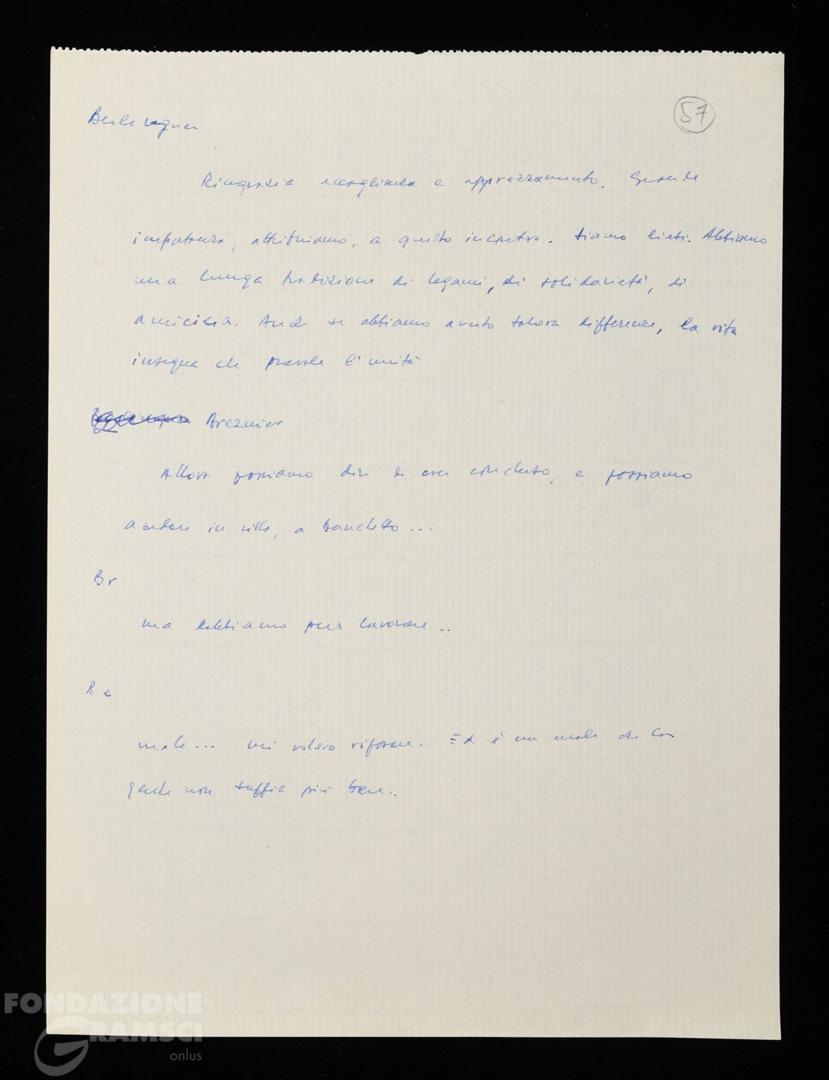 57
Berlinguer
Ringrazia accoglienza e apprezzamento. Grande
importanza, attribuiamo, a questo incontro. Siamo lieti. Abbiamo
una lunga tradizione di legami, di solidarietà, di
amicizia. Anche se abbiamo avuto talora differenze, la vita
insegna che prevale l'unità
Breznev
Allora possiamo dire di aver concluso, e possiamo
andare in villa, a banchetto...
Br
ma dobbiamo pur lavorare..
Be
male... mi volevo riposare.. Ed è un male che la
gente non sappia più bere..
FONDAZIONE
GRAMSCI
onlus